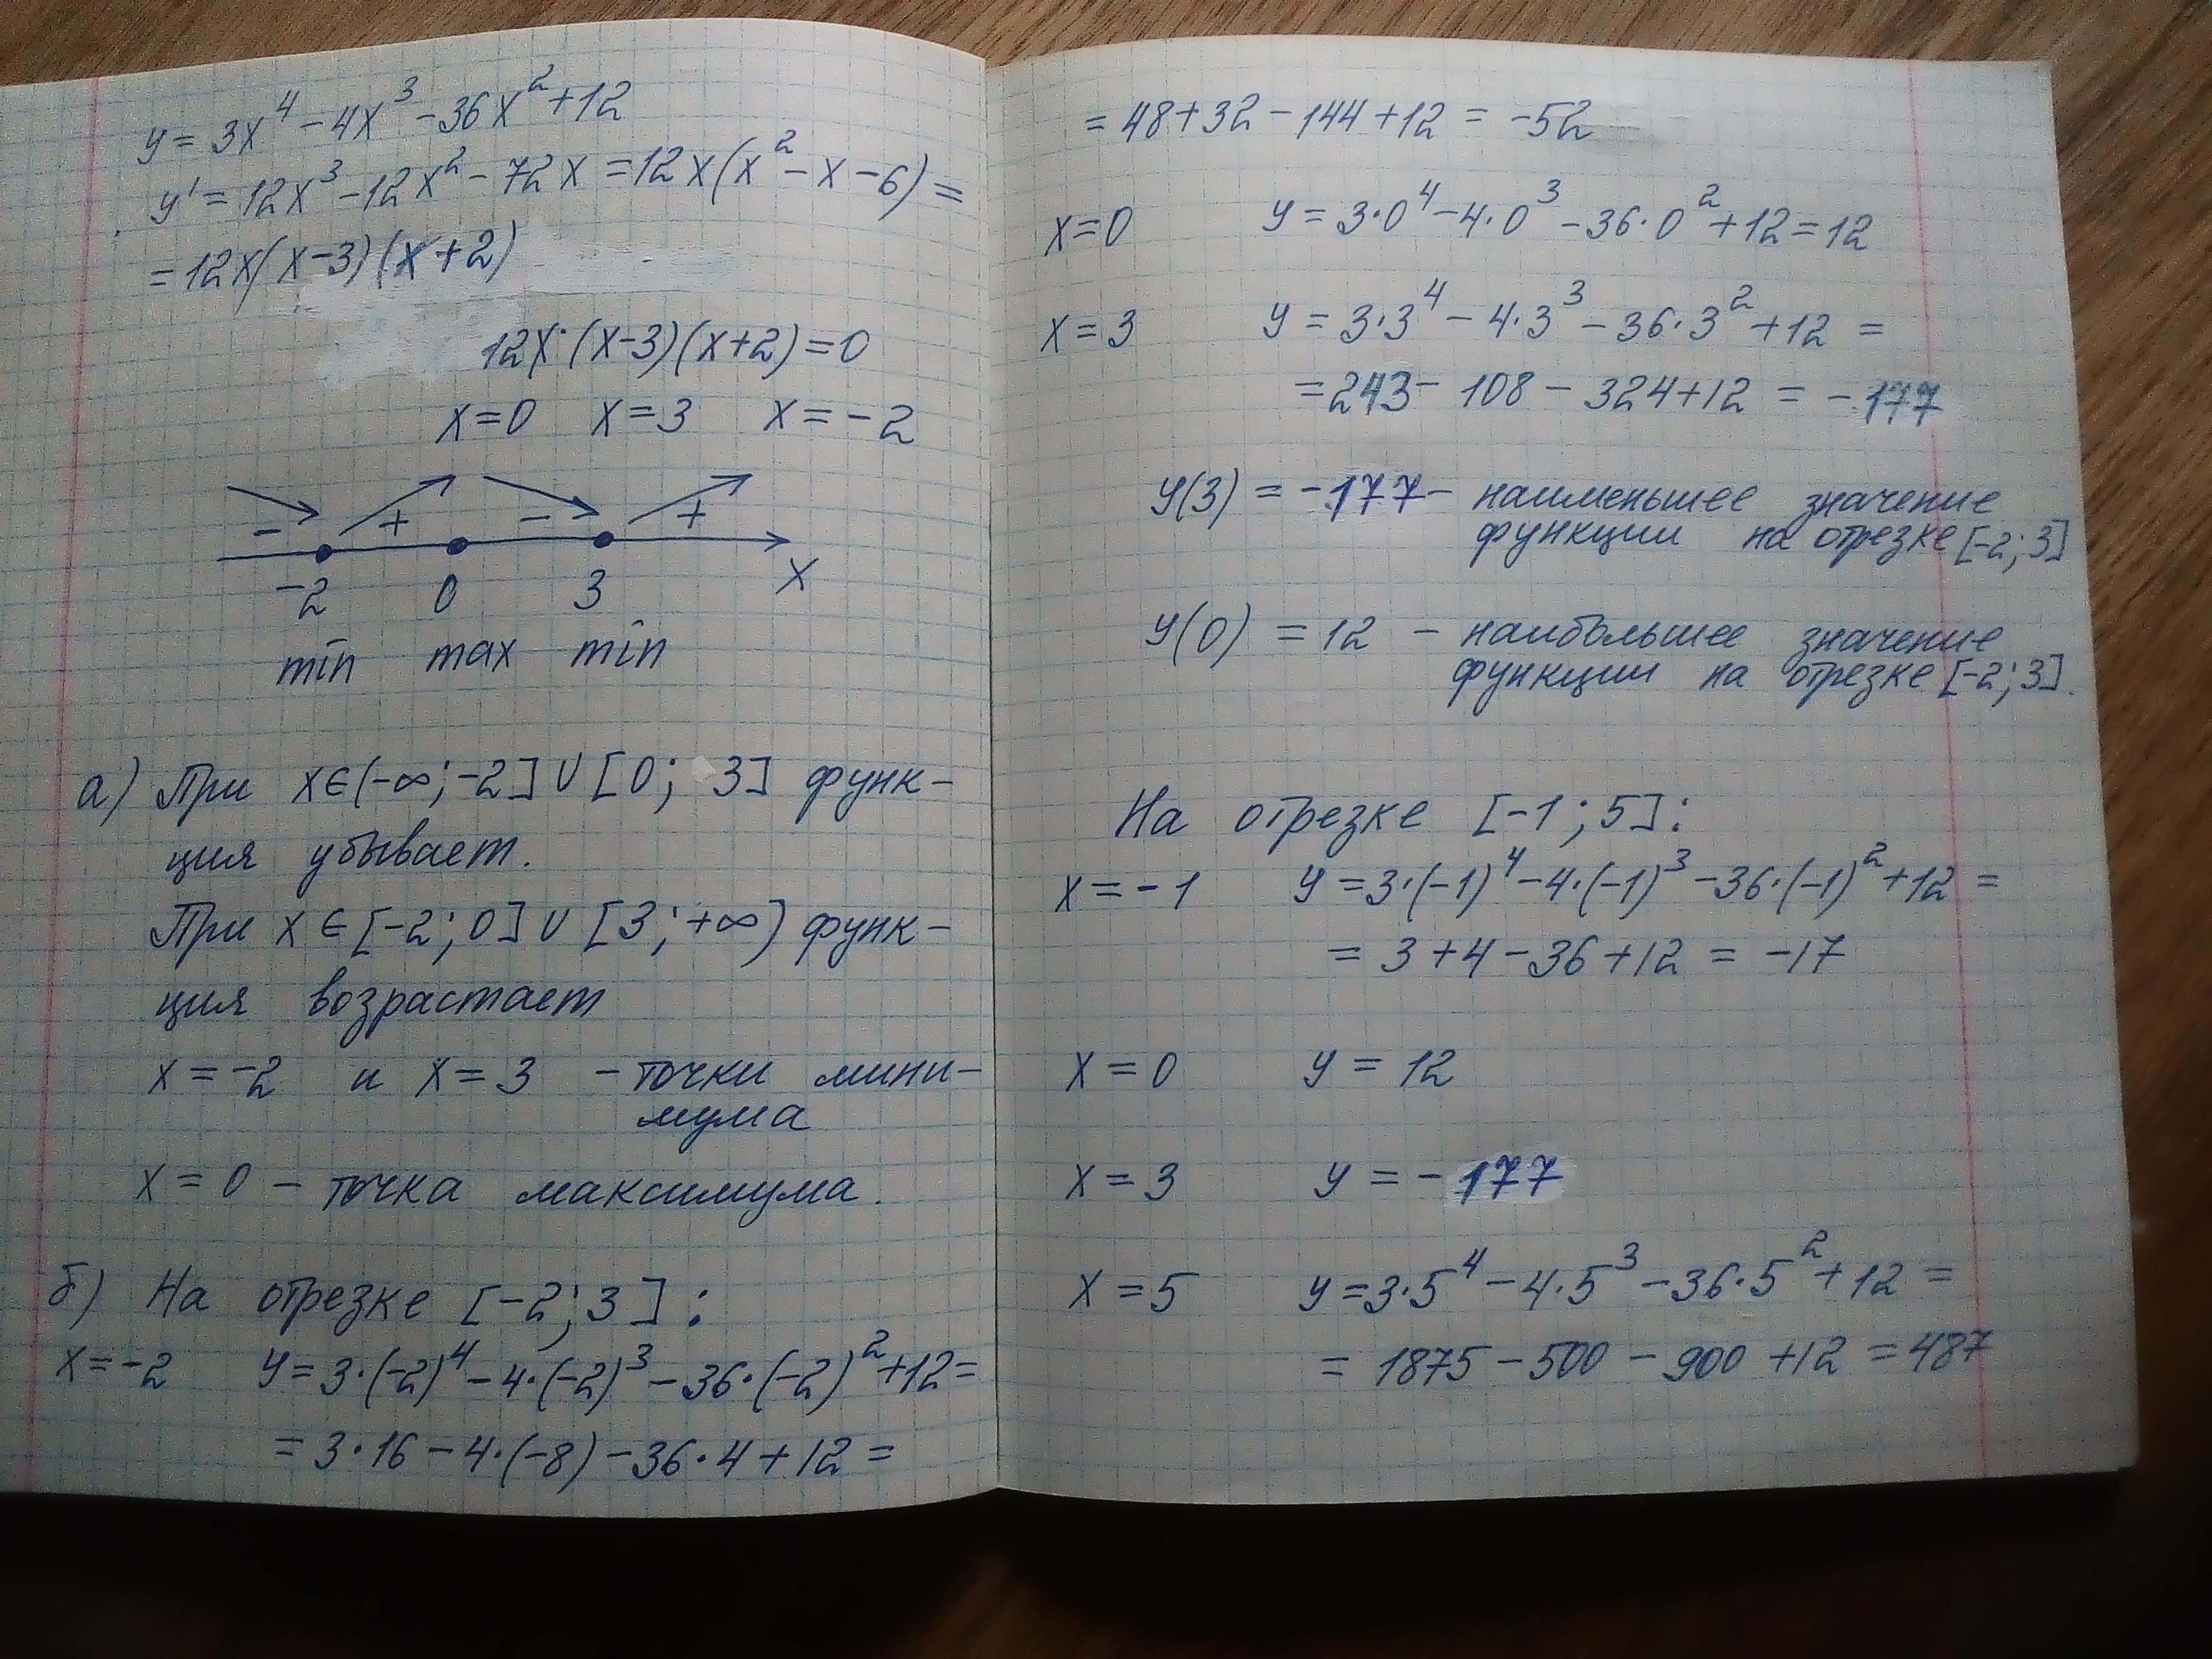 y = 3x⁴ - 4x³ - 36x² + 12
y' = 12x³ - 12x² - 72x = 12x(x² - x - 6) =
= 12x(x-3)(x+2)
12x·(x-3)(x+2) = 0
x=0 x=3 x=-2
- + - +
-2 0 3 x
min max min
а) При x∈(-∞;-2]∪[0; 3] функ-
ция убывает.
При x∈[-2;0]∪[3;+∞) функ-
ция возрастает
x=-2 и x=3 - точки мини-
мума
x=0 - точка максимума.
б) На отрезке [-2;3]:
x=-2 y=3·(-2)⁴-4·(-2)³-36·(-2)²+12=
=3·16-4·(-8)-36·4+12=
=48+32-144+12 = -52
x=0 y=3·0⁴-4·0³-36·0²+12=12
x=3 y=3·3⁴-4·3³-36·3²+12=
=243-108-324+12=-177
y(3)=-177- наименьшее значение
функции на отрезке [-2;3]
y(0)=12 - наибольшее значение
функции на отрезке [-2;3].
На отрезке [-1;5]:
x=-1 y=3·(-1)⁴-4·(-1)³-36·(-1)²+12=
=3+4-36+12=-17
x=0 y=12
x=3 y=-177
x=5 y=3·5⁴-4·5³-36·5²+12=
=1875-500-900+12=487